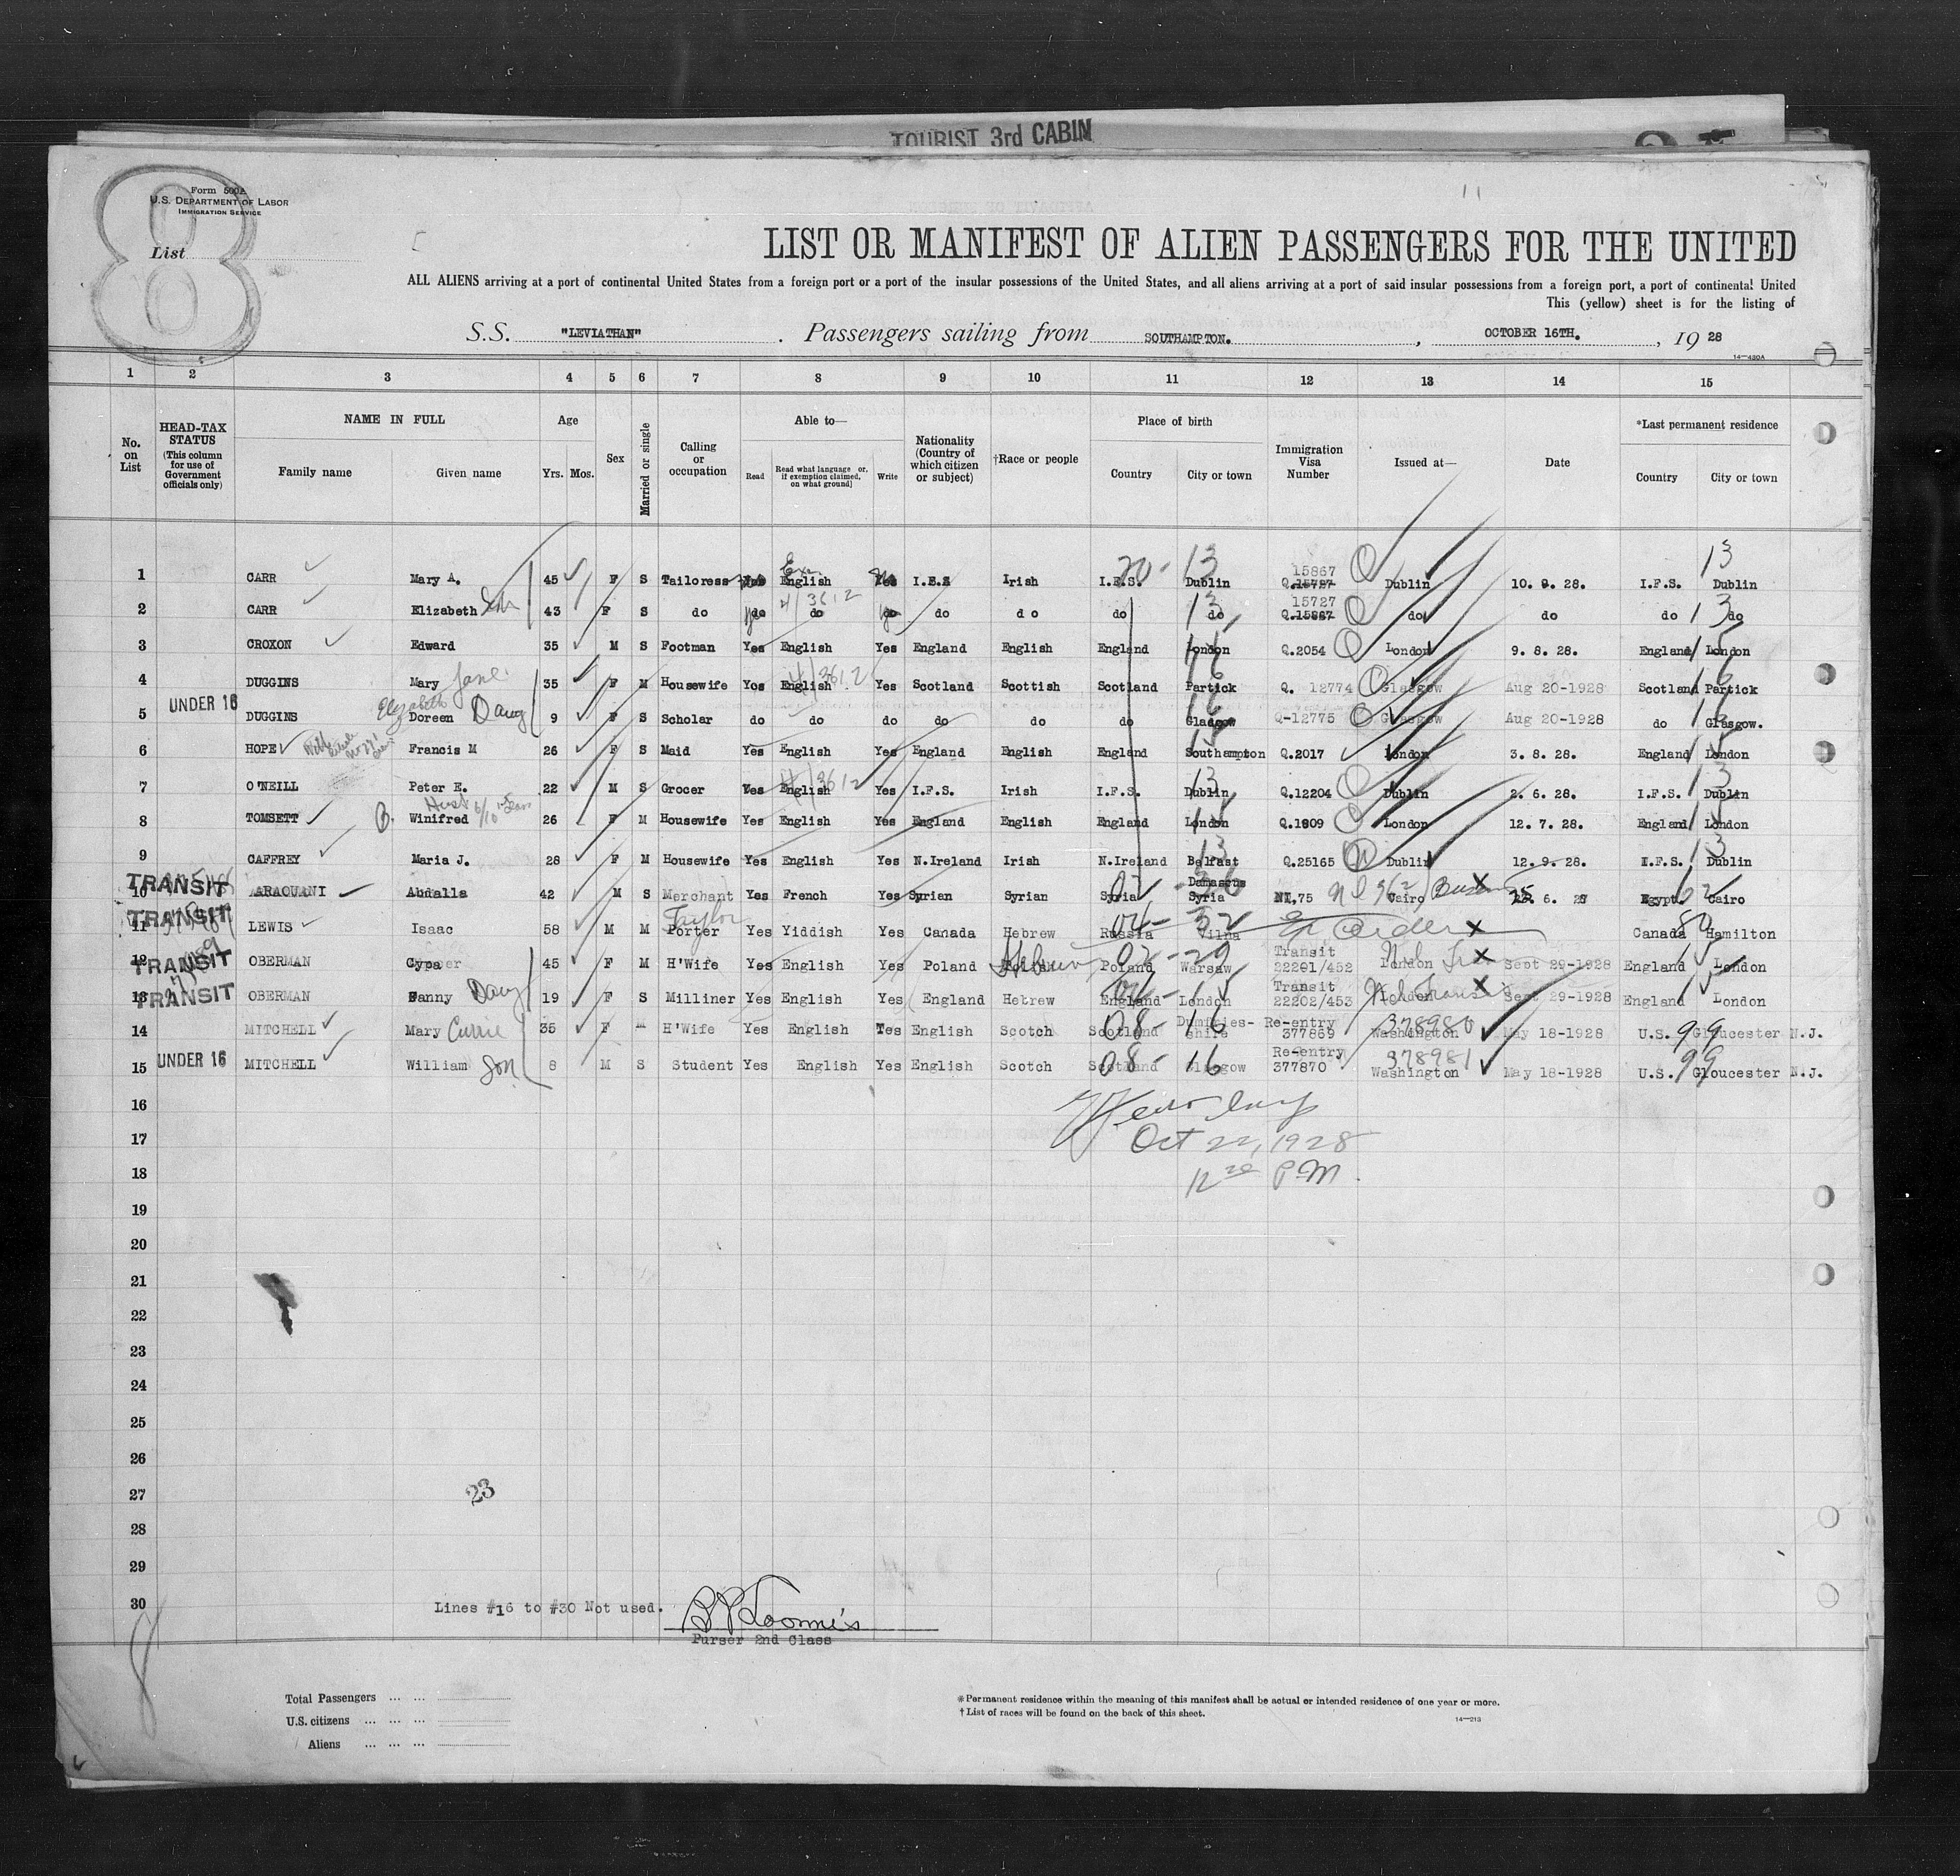 TOURIST 3rd CABIN
8
Form 500A
U.S. DEPARTMENT OF LABOR
IMMIGRATION SERVICE
List
11
LIST OR MANIFEST OF ALIEN PASSENGERS FOR THE UNITED
ALL ALIENS arriving at a port of continental United States from a foreign port or a port of the insular possessions of the United States, and all aliens arriving at a port of said insular possessions from a foreign port, a port of continental United
This (yellow) sheet is for the listing of
S.S. "LEVIATHAN" . Passengers sailing from SOUTHAMPTON. , OCTOBER 16TH. , 19 28
14—430A
1 2 3 4 5 6 7 8 9 10 11 12 13 14 15
No. on List
HEAD-TAX STATUS (This column for use of Government officials only)
NAME IN FULL
Family name Given name
Age
Yrs. Mos.
Sex
Married or single
Calling or occupation
Able to—
Read Read what language or, if exemption claimed, on what ground] Write
Nationality (Country of which citizen or subject)
†Race or people
Place of birth
Country City or town
Immigration Visa Number
Issued at—
Date
*Last permanent residence
Country City or town
1 CARR Mary A. 45 F S Tailoress Yes English Yes I.F.S Irish I.F.S. Dublin 15867 Q.15727 Dublin 10. 9. 28. I.F.S. Dublin 20- 13 13
2 CARR Elizabeth 43 F S do do do do do do do do 15727 Q.15867 do do do do 4/3612 13 13
3 CROXON Edward 35 M S Footman Yes English Yes England English England London Q.2054 London 9. 8. 28. England London 15
4 DUGGINS Mary Jane 35 F M Housewife Yes English Yes Scotland Scottish Scotland Partick Q. 12774 Glasgow Aug 20-1928 Scotland Partick 4/3612 16 16
UNDER 16
5 DUGGINS Elizabeth Doreen Daug 9 F S Scholar do do do do do do Glasgow Q-12775 Glasgow Aug 20-1928 do Glasgow. 16 16
6 HOPE Francis M 26 F S Maid Yes English Yes England English England Southampton Q.2017 London 3. 8. 28. England London 15 15
7 O'NEILL Peter E. 22 M S Grocer Yes English Yes I.F.S. Irish I.F.S. Dublin Q.12204 Dublin 2. 6. 28. I.F.S. Dublin 4/3612 13 13
8 TOMSETT B. Winifred 26 F M Housewife Yes English Yes England English England London Q.1809 London 12. 7. 28. England London 15 15
9 CAFFREY Maria J. 28 F M Housewife Yes English Yes N.Ireland Irish N.Ireland Belfast Q.25165 Dublin 12. 9. 28. I.F.S. Dublin 13 13
TRANSIT
10 ARAOUANI Abdalla 42 M S Merchant Yes French Yes Syrian Syrian Syria Damascus Syria NI.75 Cairo 6. Egypt. Cairo
TRANSIT
11 LEWIS Isaac 58 M M Taylor Porter Yes Yiddish Yes Canada Hebrew Russia Vilna Canada Hamilton 04- 32 80
TRANSIT
12 OBERMAN Cypa 45 F M H'Wife Yes English Yes Poland Hebrew Poland Warsaw Transit 22201/452 London Sept 29-1928 England London 02-29 15
TRANSIT
13 OBERMAN Fanny Daug 19 F S Milliner Yes English Yes England Hebrew England London Transit 22202/453 London Sept 29-1928 England London 15 15
14 MITCHELL Mary Currie 35 F M H'Wife Yes English Yes English Scotch Scotland Dumfries-shire Re-entry 377869 378980 Washington May 18-1928 U.S. Gloucester N.J. 08- 16 99
UNDER 16
15 MITCHELL William Son 8 M S Student Yes English Yes English Scotch Scotland Glasgow Re-entry 377870 378981 Washington May 18-1928 U.S. Gloucester N.J. 08- 16 99
16
Oct 22, 1928
17
P.M.
18
19
20
21
22
23
24
25
26
27
23
28
29
30
Lines #16 to #30 Not used.
Purser 2nd Class
8
Total Passengers ... ...
U.S. citizens ... ... ...
Aliens ... ... ...
*Permanent residence within the meaning of this manifest shall be actual or intended residence of one year or more.
†List of races will be found on the back of this sheet.
14—213